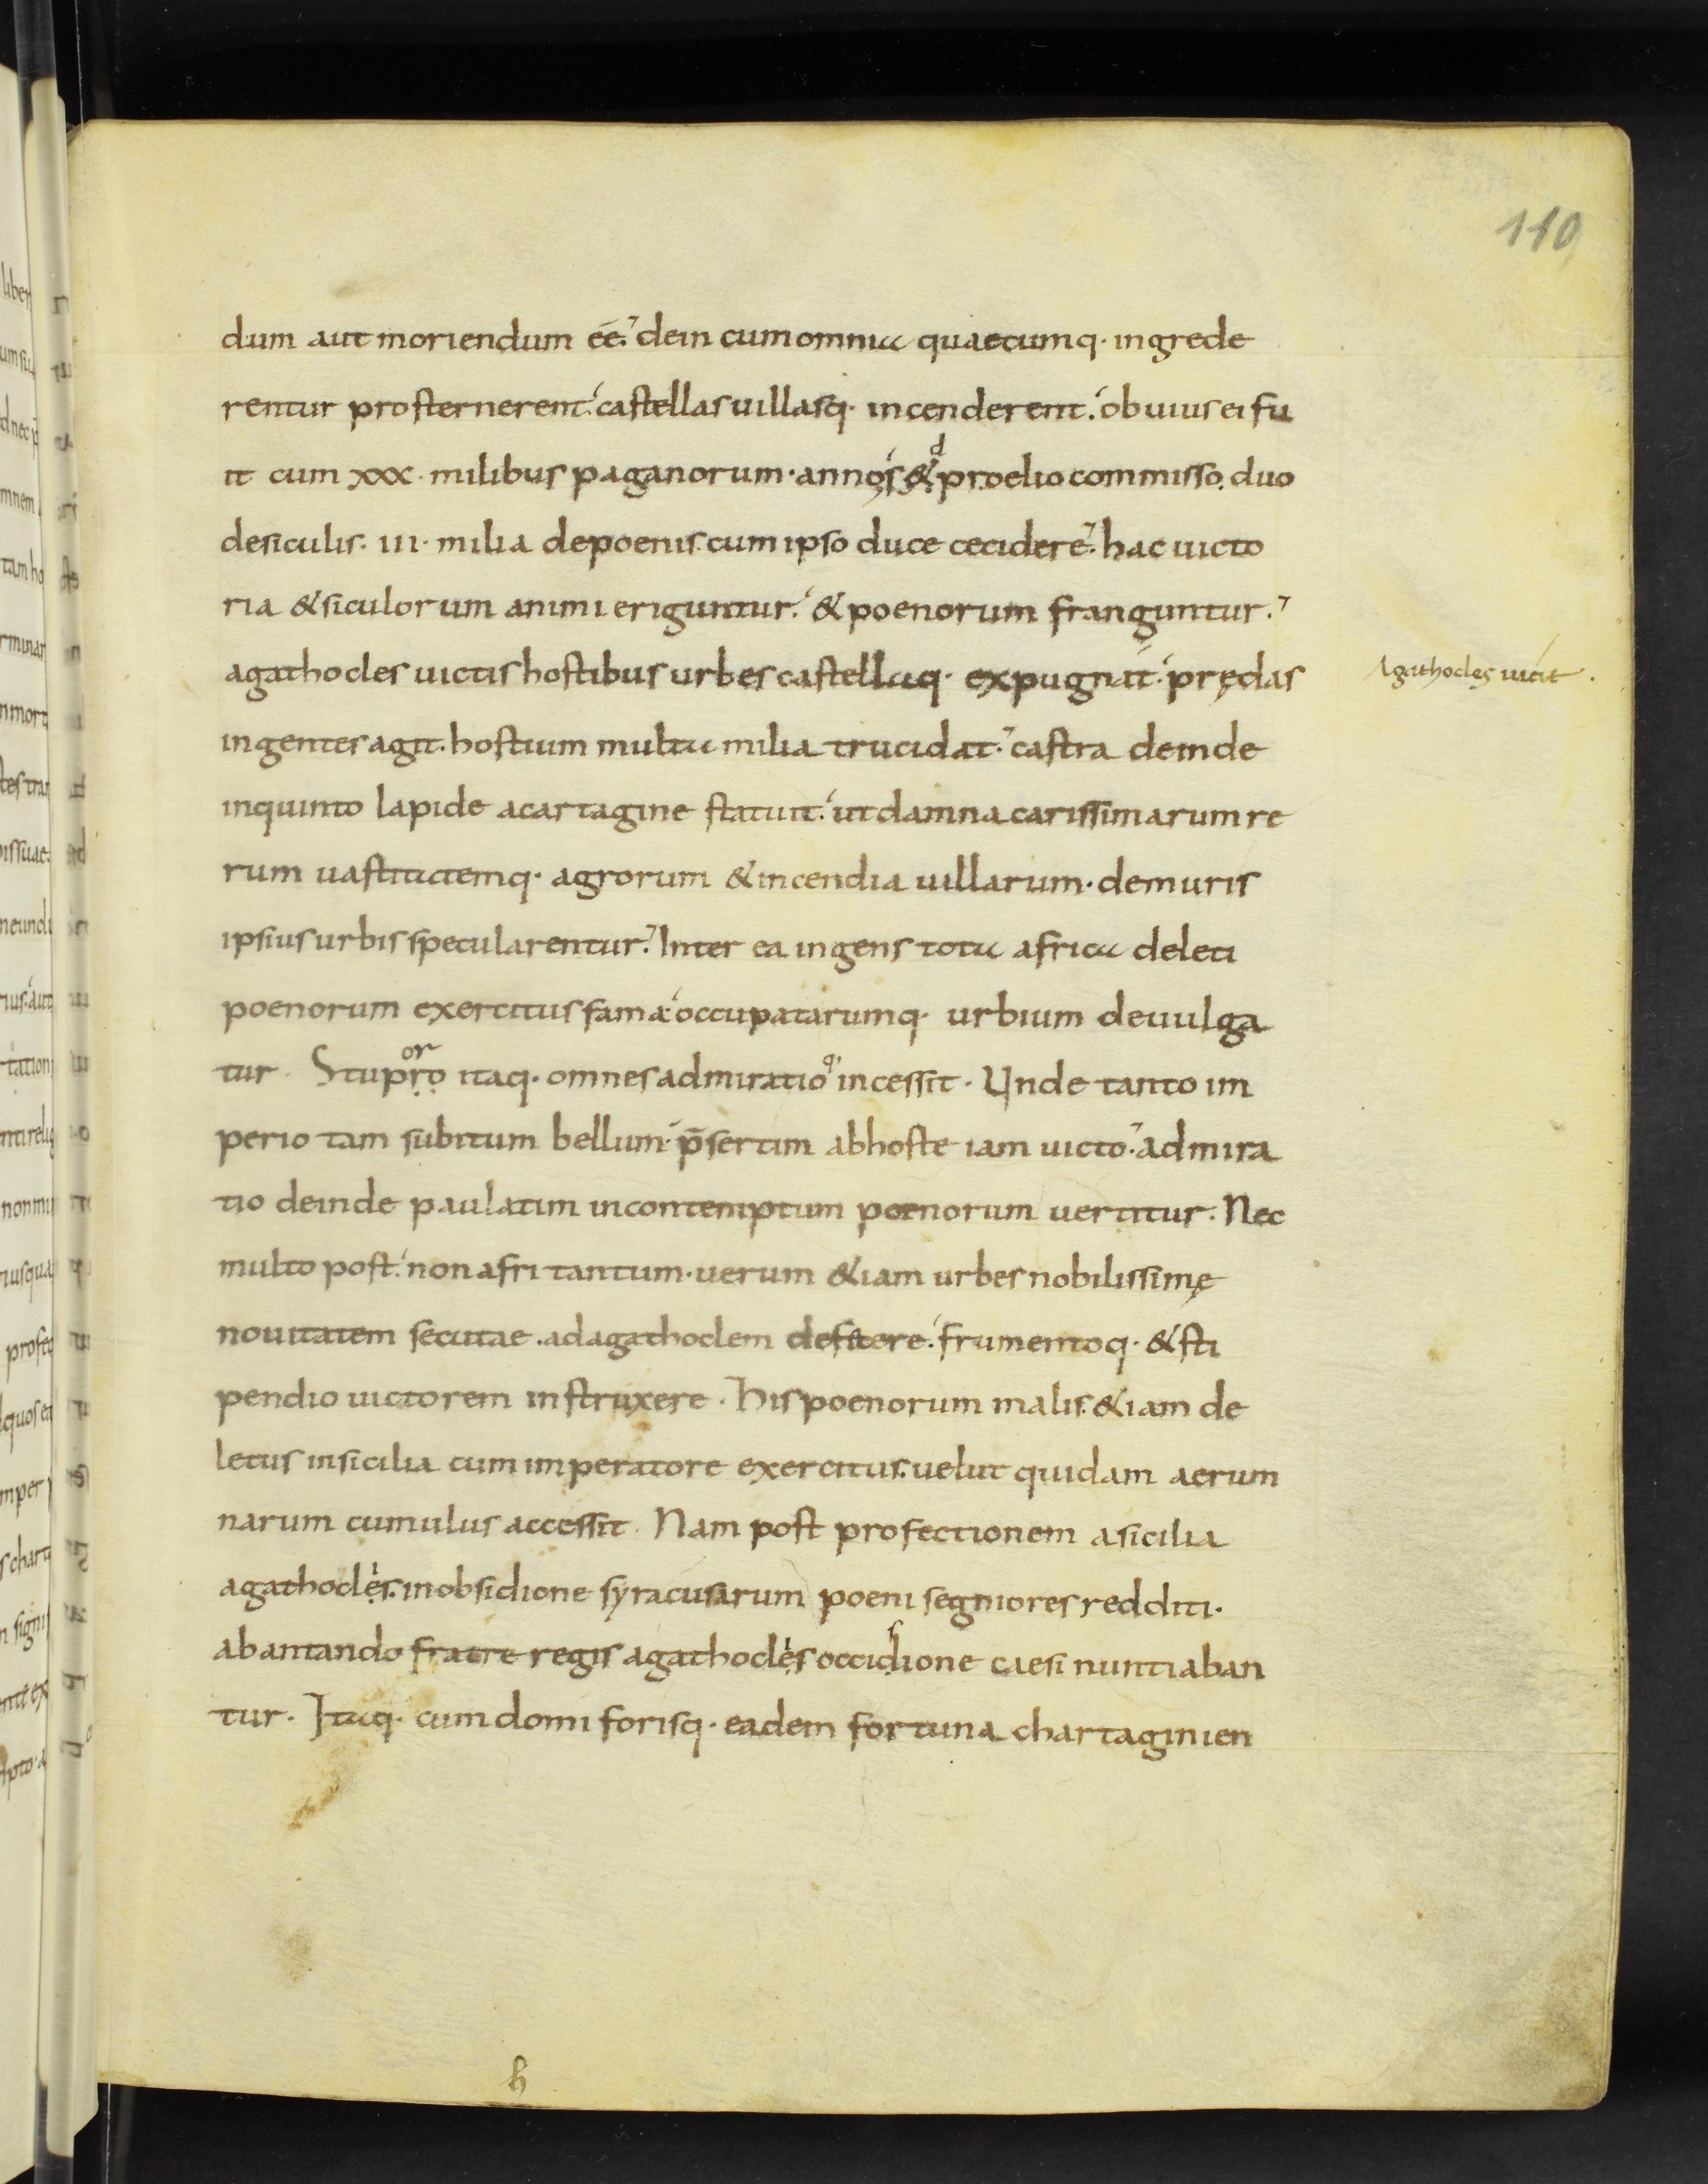 110
dum aut moriendum éé. dein cum omnia quaecumq· ingrede
rentur prosternerent. castellas uillasq· incenderent. obuius ei fu
it cum xxx· milibus paganorum· annos & d proelio commisso. duo
desiculis· iii· milia depoenis. cum ipso duce cecidere. hac uicto
ria & siculorum animi eriguntur. & poenorum franguntur.
agathocles uictis hostibus urbes castellaq· expugnat. prędas
Agathocles uicit.
ingentes agit. hostium multa milia trucidat. castra deinde
inquinto lapide acartagine statuit. ut damna carissimarum re
rum uastitatemq· agrorum & incendia uillarum· demuris
ipsius urbis specularentur. Inter ea ingens tota africa deleti
poenorum exercitus fama. occupatarumq· urbium deuulga
tur. Stupro or itaq· omnes admiratio q· incessit· Unde tanto im
perio tam subitum bellum· p̄sertim abhoste iam uicto· admira
tio deinde paulatim incontemptum poenorum uertitur. Nec
multo post. non afri tantum· uerum & iam urbes nobilissimę
nouitatem secutae. ad agathoclem defitere. frumentoq· & sti
pendio uictorem instruxere. His poenorum malis. & iam de
letus insicilia cum imperatore exercitus. uelut quidam aerum
narum cumulus accessit. Nam post profectionem asicilia
agathocles. inobsidione syracusarum poeni segniores redditi.
abantando fratre regis agathocles occidione caesi nuntiaban
tur. Itaq· cum domi forisq· eadem fortuna chartaginien
h